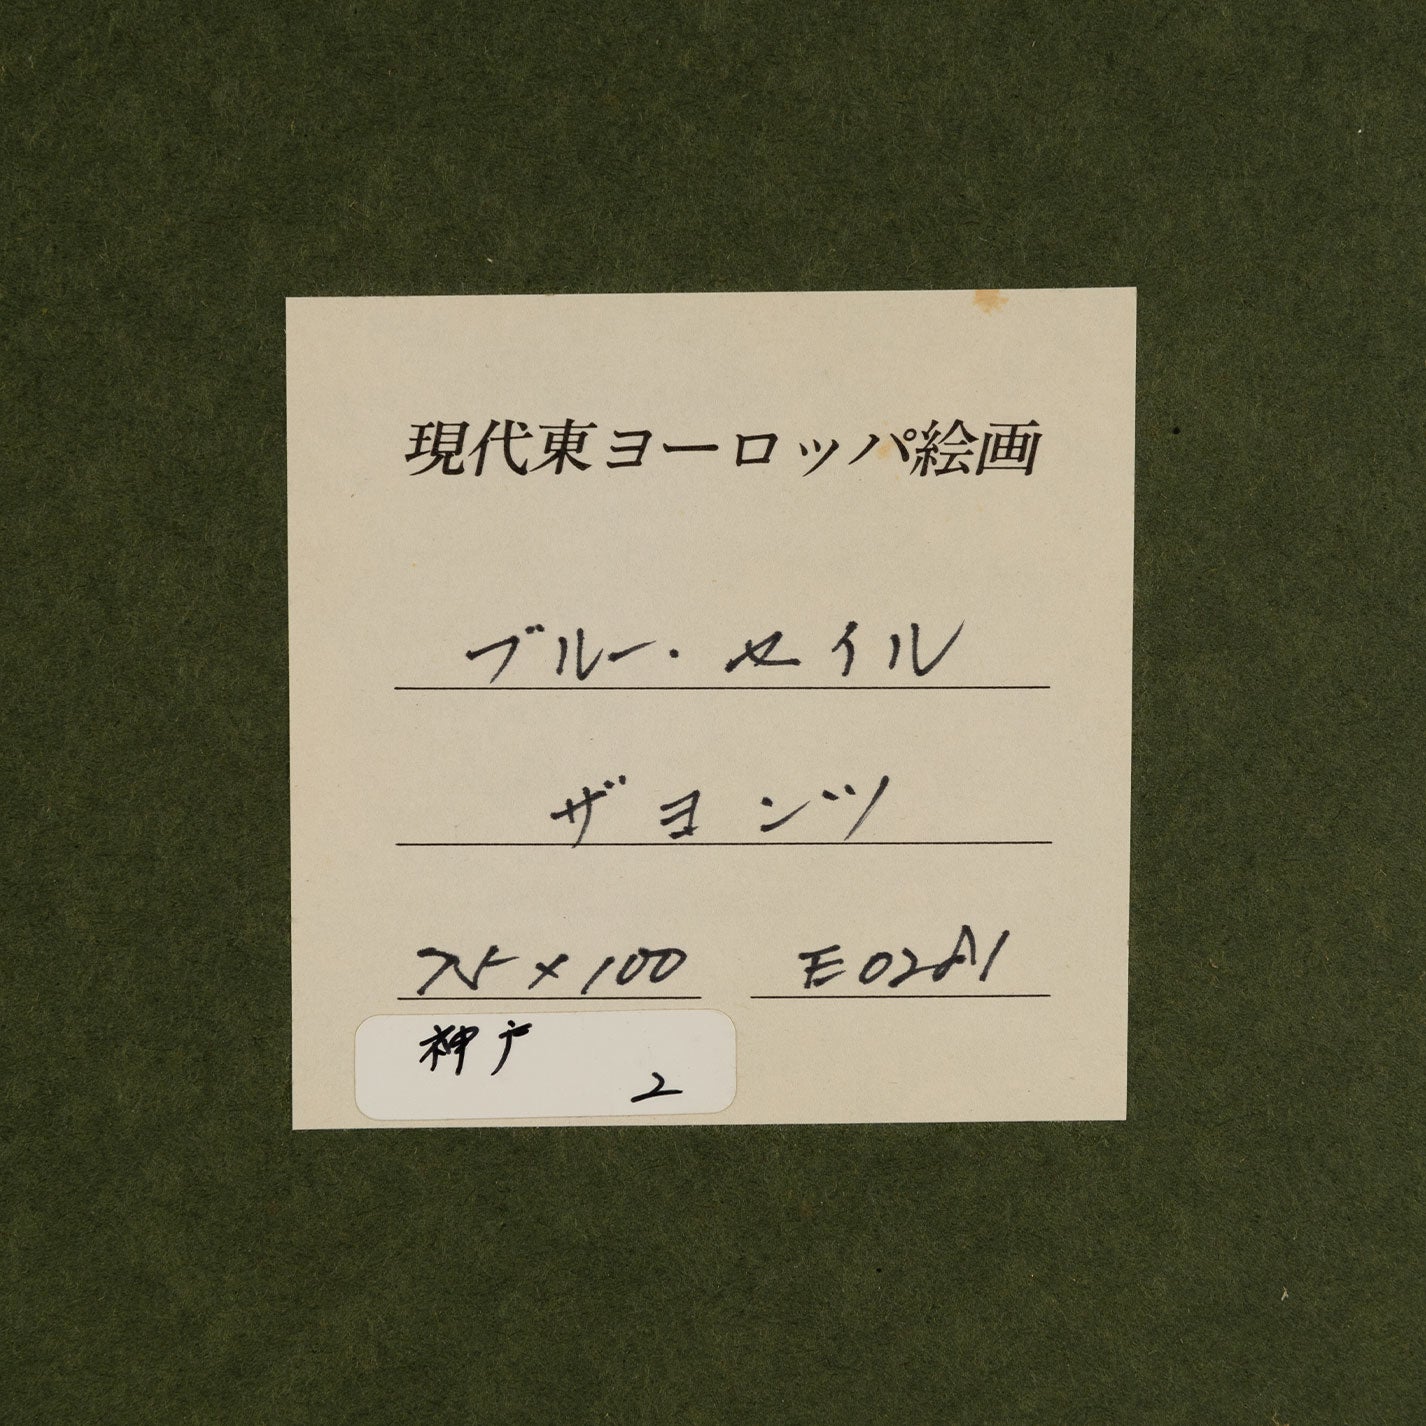 現代東ヨーロッパ絵画
ブルー・セイル
ザヨンツ
75×100 E0281
神戸
2